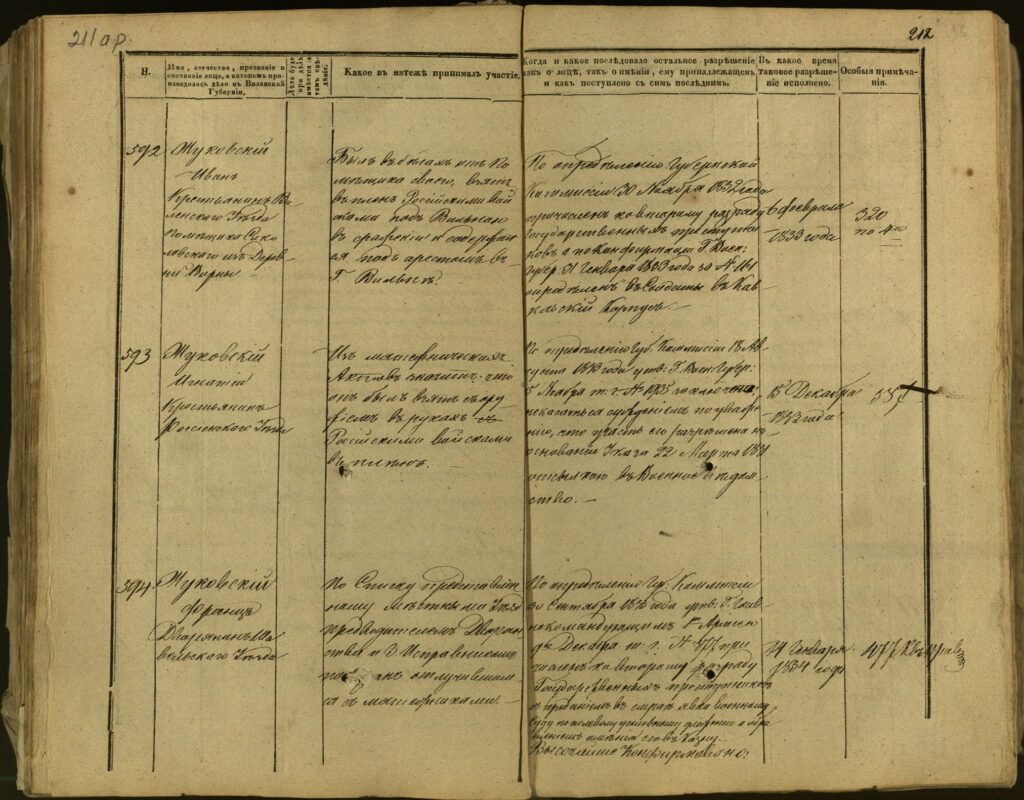 211 ар.
212
Н.
Имя, отечество, прозвание и
состояние лица, о котором про-
изводилось дело в Виленской
Губернии.
Какое въ мятежѣ принималъ участіе.
Когда и какое послѣдовало остальное разрѣшеніе
какъ о лицѣ, такъ о имѣніи, ему принадлежащемъ
и какъ поступлено съ симъ послѣднимъ.
Въ какое время
таковое разрѣше-
ніе исполнено.
Особыя примѣча-
нія.
592
Жуковскій
Иванъ
Крестьянинъ Ви-
ленскаго Уѣзда
Помѣщика
изъ Дерев-
ни
Былъ въ бѣгахъ отъ По-
мѣщика своего, взятъ
въ плѣнъ Россійскими вой-
сками подъ Вильною
въ сраженіи и содержал-
ся подъ арестомъ въ
Г. Вильнѣ.
По опредѣленію Губернской
Коммисіи 30 Ноября 1832 года
причисленъ ко второму разряду
государственныхъ преступни-
ковъ а по конфирмаціи Г. Воен:
Губер: 31 Генваря 1833 года за № 161
опредѣленъ въ Солдаты въ Кав-
казскій Корпусъ.
6 Февраля
1833 года
320
по 4й
593
Жуковскій
Игнатій
Крестьянинъ
Россіенскаго Уѣзда
Изъ мятежническихъ
Актовъ что
онъ былъ взятъ съ ору-
жіемъ въ рукахъ
Россійскими войсками
въ плѣнъ.
По опредѣленію Губ. Коммисіи 18 Ав-
густа 1833 года утв: Г. Воен: Губер:
5 Ноября т. г. № 1935 заключено:
некасаться сужденіемъ по уваже-
нію, что участь его разрѣшена на
основаніи Указа 22 Марта 1831
отсылкою въ Военное вѣдом-
ство. —
15 Декабря
1833 года
594
Жуковскій
Францъ
Дворянинъ Ша-
вельскаго Уѣзда
По Списку представлен-
ному мѣстнымъ Уѣзд:
предводителемъ Дворян-
ства и Г. Исправникомъ
показанъ отлучившим-
ся съ мятежниками.
По опредѣленію Губ. Коммисіи
30 Сентября года утв: Г. Глав-
нокомандующимъ 1й Арміею
Декабря т. г. № 477 при-
численъ ко второму разряду
Государственныхъ преступниковъ
съ преданіемъ въ случаѣ явки военному
суду по полевому уголовному уложенію и обра-
щеніемъ имѣнія его въ Казну
Высочайше Конфирмовано:
14 Генваря
1834 года
477